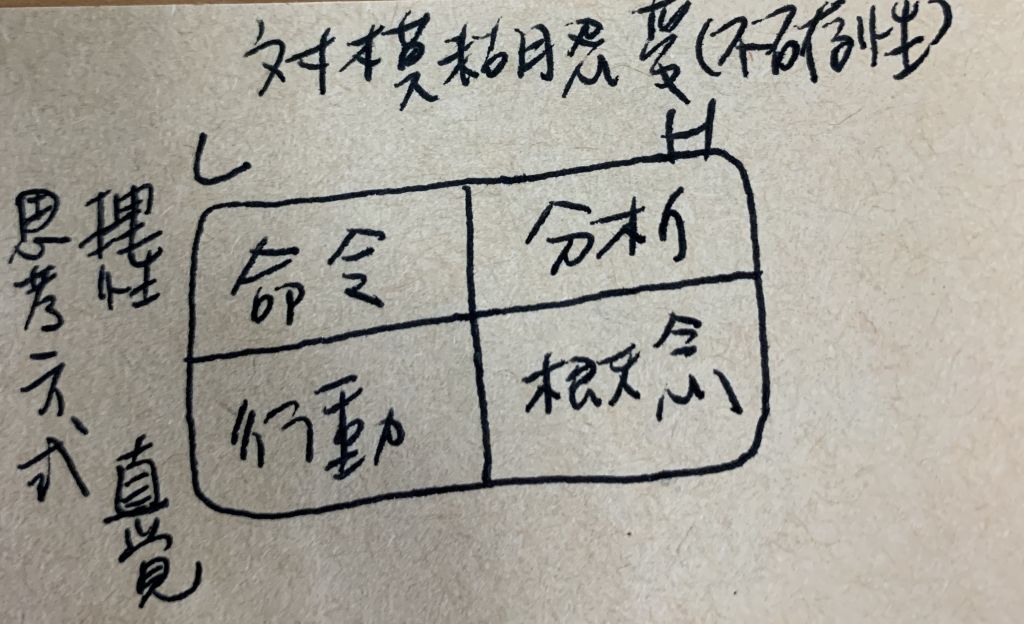 対模糊忍受(不確性)
L H
思考方式
理性
命令 分析
行動 概念
直覚